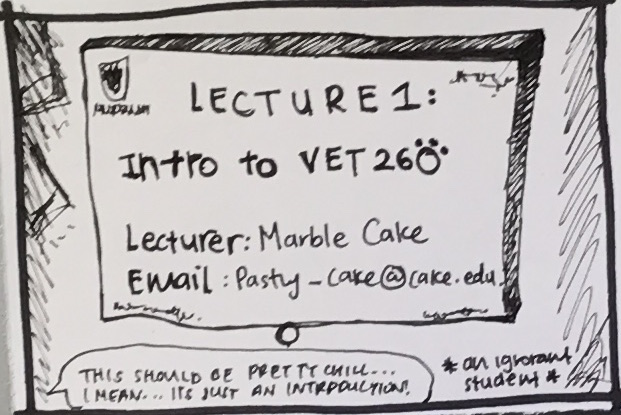 LECTURE 1:
Intro to VET 260
Lecturer: Marble Cake
Email : Pasty_cake@cake.edu
THIS SHOULD BE PRETTY CHILL...
I MEAN... ITS JUST AN INTRODUCTION!
* an ignorant
student *